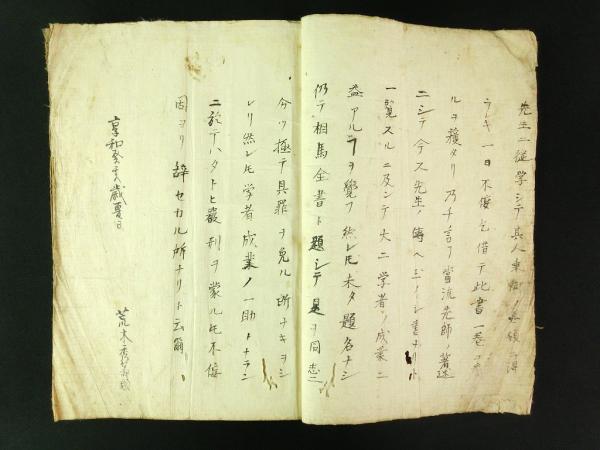 先生ニ従学シテ其人
ラレキ一日不侫乞借テ此書一巻
ルヲ獲タリ乃チ言フ当流先師ノ著述
ニシテ今ス先生ノ傳ヘ玉ノシ書ナリト
一覧スルニ及ンテ大ニ学者ノ成業ニ
益アルヿヲ覺フ然レ𪜈未タ題名ナシ
仍テ相馬全書ト題シテ是ヲ同志ニ
今ツ極テ其罪ヲ免ル所ナキヲシ
レリ然レ𪜈学者成業ノ一助トナラン
ニ於テハタトヒ嚴刑ヲ蒙ル𪜈不侫
固ヨリ辞セサル所ナリト云爾
享和癸亥歳夏日
荒木